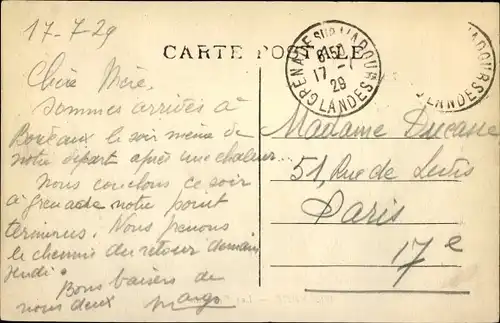 17-7-29
CARTE POSTALE
GRENADE SUR L'ADOUR
LANDES
17 -7
29
ADOUR
LANDES
Chère Mère,
Sommes arrivés à
Bordeaux le soir même de
notre départ après une chaleur...
Nous couchons ce soir
à grenade notre point
terminus. Nous prenons
le chemin du retour demain
jeudi.
Bons baisers de
nous deux
Margo
Madame Ducasse
51, Rue de
Paris
17e